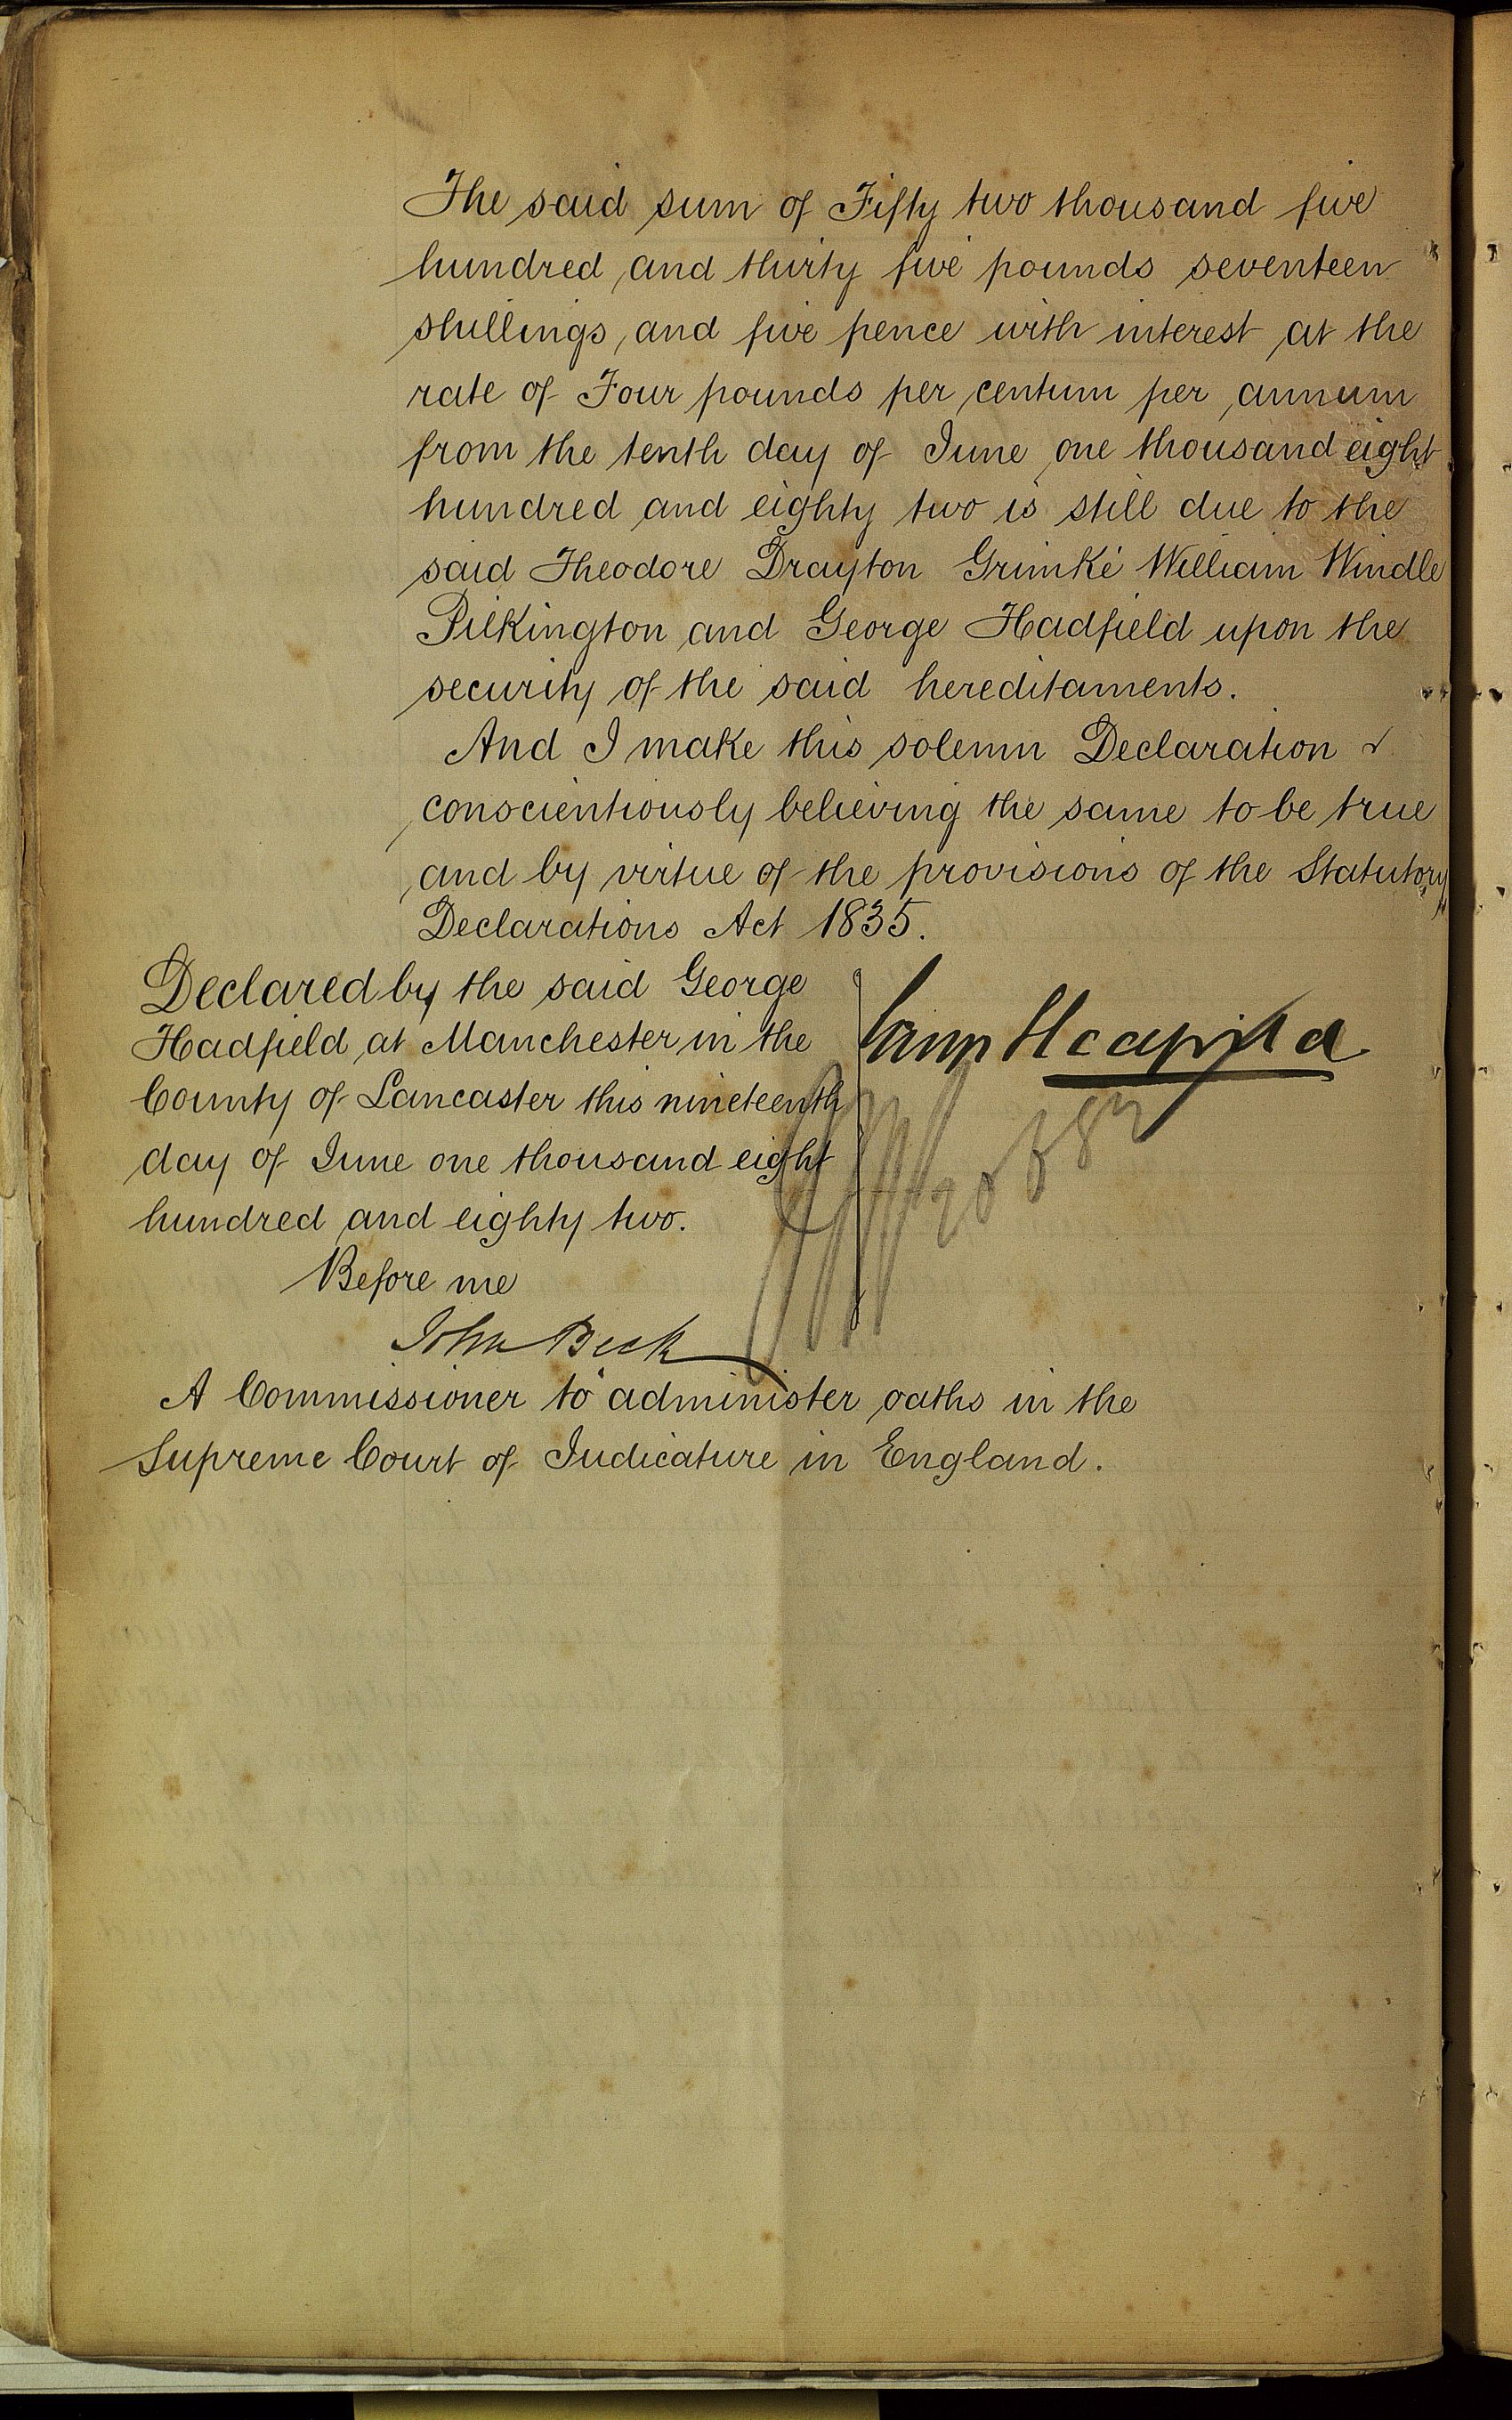 The said sum of Fifty two thousand five
hundred and thirty five pounds seventeen
shillings and five pence with interest at the
rate of Four pounds per centum per annum
from the tenth day of June one thousand eight
hundred and eighty two is still due to the
said Theodore Drayton Grimké William Windle
Pilkington and George Hadfield upon the
security of the said hereditaments.
And I make this solemn Declaration
conscientiously believing the same to be true
and by virtue of the provisions of the Statutory
Declarations Act 1835.
Declared by the said George
Hadfield at Manchester in the
County of Lancaster this nineteenth
day of June one thousand eight
hundred and eighty two.
Before me
John Beck
A Commissioner to administer oaths in the
Supreme Court of Judicature in England.